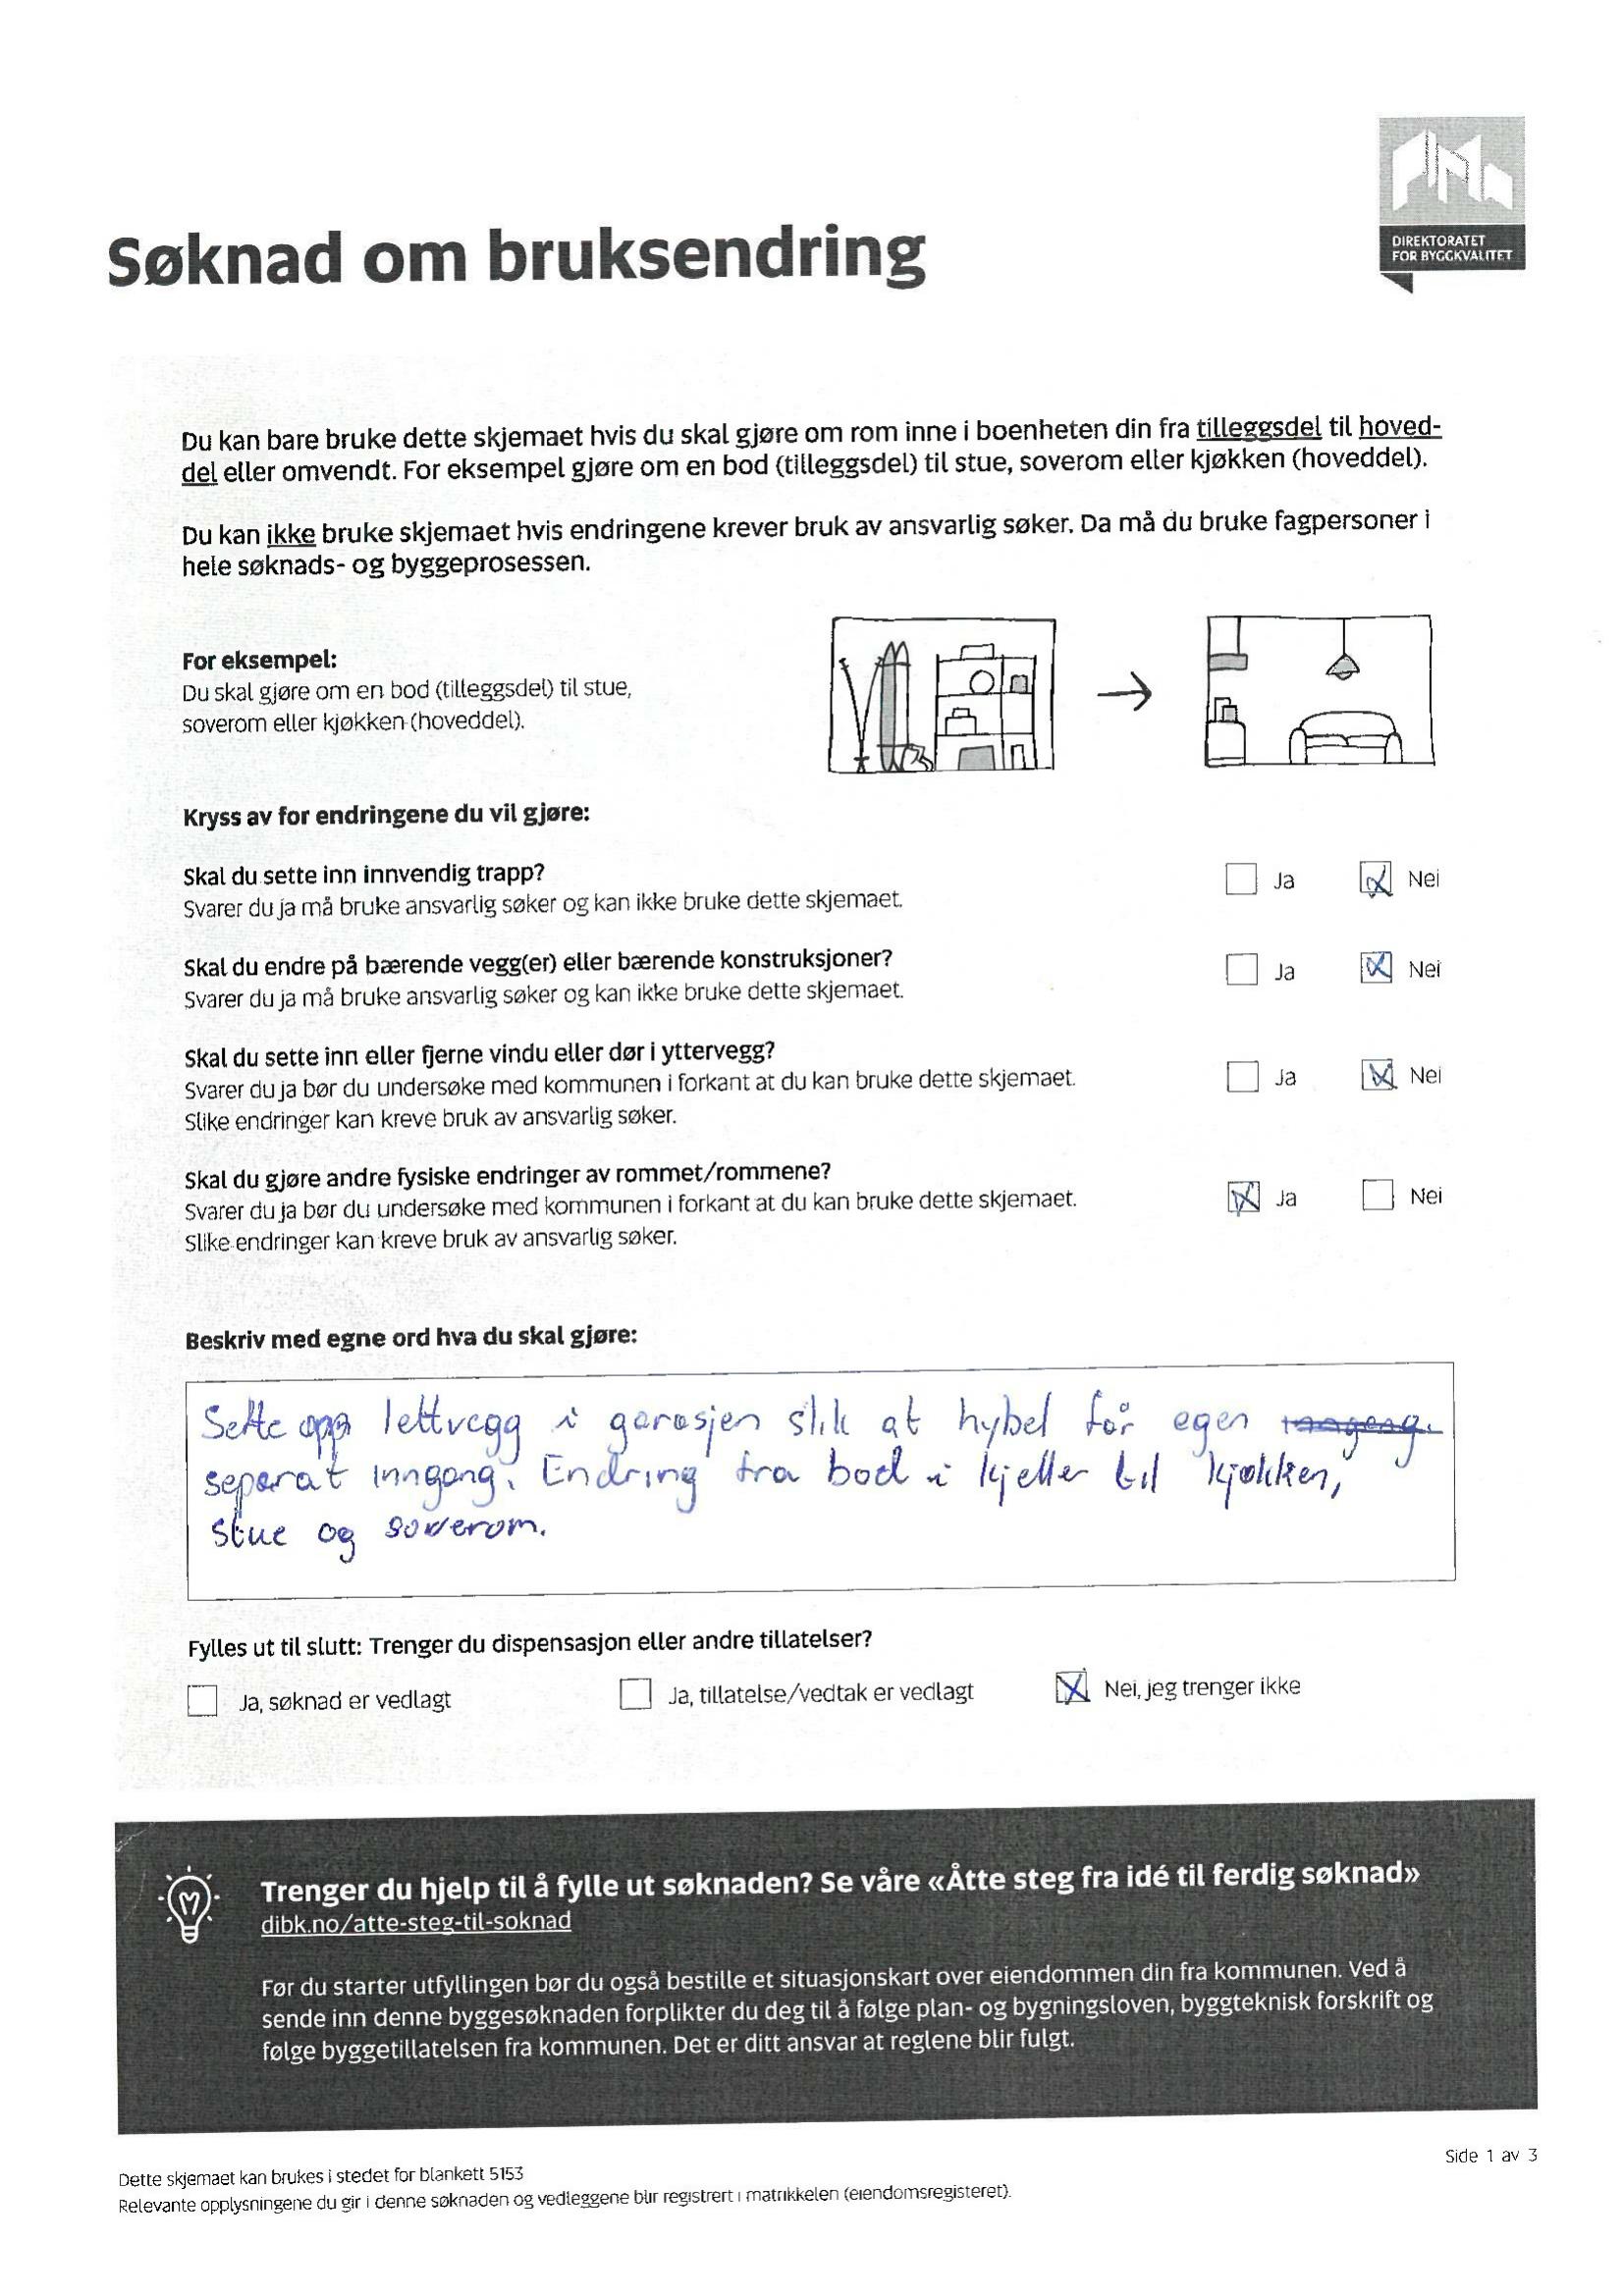 DIREKTORATET
FOR BYGGKVALITET
Søknad om bruksendring
Du kan bare bruke dette skjemaet hvis du skal gjøre om rom inne i boenheten din fra tilleggsdel til hoved-
del eller omvendt. For eksempel gjøre om en bod (tilleggsdel) til stue, soverom eller kjøkken (hoveddel).
Du kan ikke bruke skjemaet hvis endringene krever bruk av ansvarlig søker. Da må du bruke fagpersoner i
hele søknads- og byggeprosessen.
For eksempel:
Du skal gjøre om en bod (tilleggsdel) til stue,
soverom eller kjøkken (hoveddel).
Kryss av for endringene du vil gjøre:
Skal du sette inn innvendig trapp?
Svarer du ja må bruke ansvarlig søker og kan ikke bruke dette skjemaet.
Ja Nei
Skal du endre på bærende vegg(er) eller bærende konstruksjoner?
Svarer du ja må bruke ansvarlig søker og kan ikke bruke dette skjemaet.
Ja Nei
Skal du sette inn eller fjerne vindu eller dør i yttervegg?
Svarer du ja bør du undersøke med kommunen i forkant at du kan bruke dette skjemaet.
Slike endringer kan kreve bruk av ansvarlig søker.
Ja Nei
Skal du gjøre andre fysiske endringer av rommet/rommene?
Svarer du ja bør du undersøke med kommunen i forkant at du kan bruke dette skjemaet.
Slike endringer kan kreve bruk av ansvarlig søker.
Ja Nei
Beskriv med egne ord hva du skal gjøre:
Sette opp lettvegg i garasjen slik at hybel får egen inngang.
separat inngang. Endring fra bod i kjeller til kjøkken,
stue og soverom.
Fylles ut til slutt: Trenger du dispensasjon eller andre tillatelser?
Ja, søknad er vedlagt Ja, tillatelse/vedtak er vedlagt Nei, jeg trenger ikke
Trenger du hjelp til å fylle ut søknaden? Se våre «Åtte steg fra idé til ferdig søknad»
dibk.no/atte-steg-til-soknad
Før du starter utfyllingen bør du også bestille et situasjonskart over eiendommen din fra kommunen. Ved å
sende inn denne byggesøknaden forplikter du deg til å følge plan- og bygningsloven, byggteknisk forskrift og
følge byggetillatelsen fra kommunen. Det er ditt ansvar at reglene blir fulgt.
Side 1 av 3
Dette skjemaet kan brukes i stedet for blankett 5153
Relevante opplysningene du gir i denne søknaden og vedleggene blir registrert i matrikkelen (eiendomsregisteret).